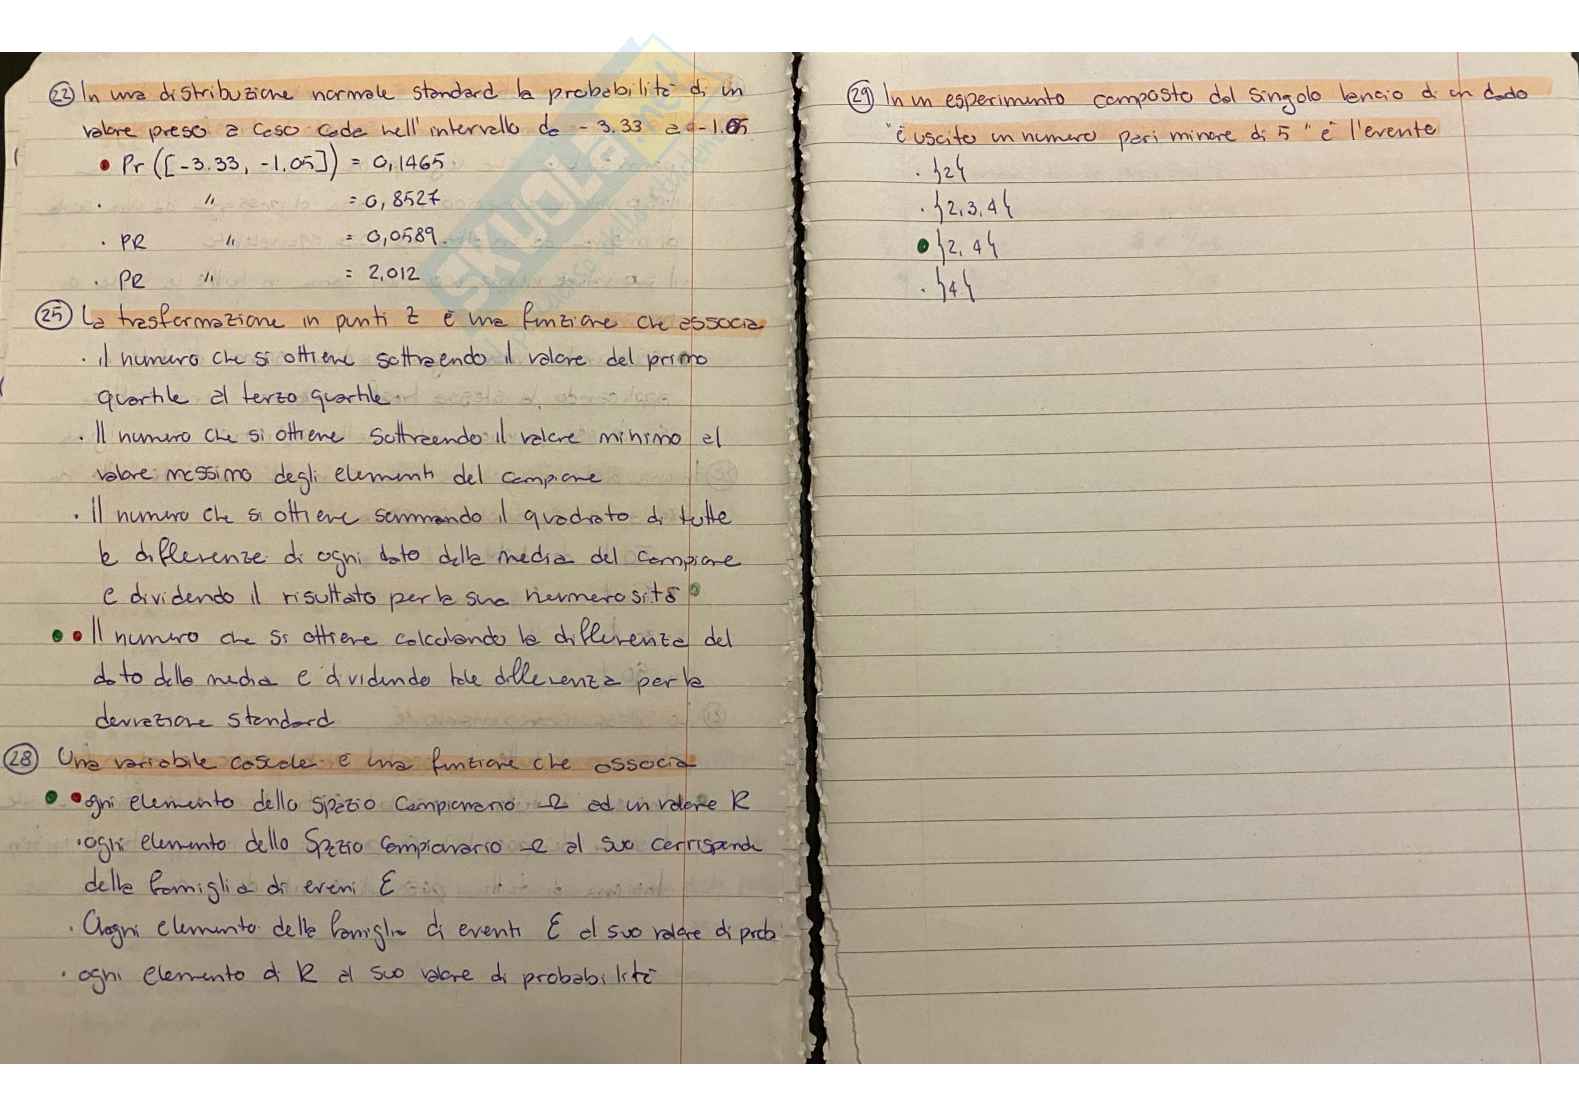 22 In una distribuzione normale standard la probabilità di un
valore preso a caso cade nell'intervallo da -3.33 a -1.05
• Pr ([-3.33, -1.05]) = 0,1465
· " = 0,8527
· PR " = 0,0589
· PR " = 2,012
25 La trasformazione in punti Z è una funzione che associa
· il numero che si ottiene sottraendo il valore del primo
quartile al terzo quartile
· Il numero che si ottiene sottraendo il valore minimo al
valore massimo degli elementi del campione
· Il numero che si ottiene sommando il quadrato di tutte
le differenze di ogni dato dalla media del campione
e dividendo il risultato per la sua numerosità
• • Il numero che si ottiene calcolando la differenza del
dato dalla media e dividendo tale differenza per la
deviazione standard
28 Una variabile casuale è una funzione che associa
• • ogni elemento dello spazio Campionario Ω ad un valore R
· ogni elemento dello Spazio Campionario Ω al suo corrisponde
della famiglia di eveni E
· Aogni elemento della famiglia di eventi E al suo valore di prob
· ogni elemento di R al suo valore di probabilità
29 In un esperimento composto dal singolo lancio di un dado
"è uscito un numero pari minore di 5" è l'evente
· }2{
· }2,3,4{
• }2,4{
· }4{
SKUOLA.net